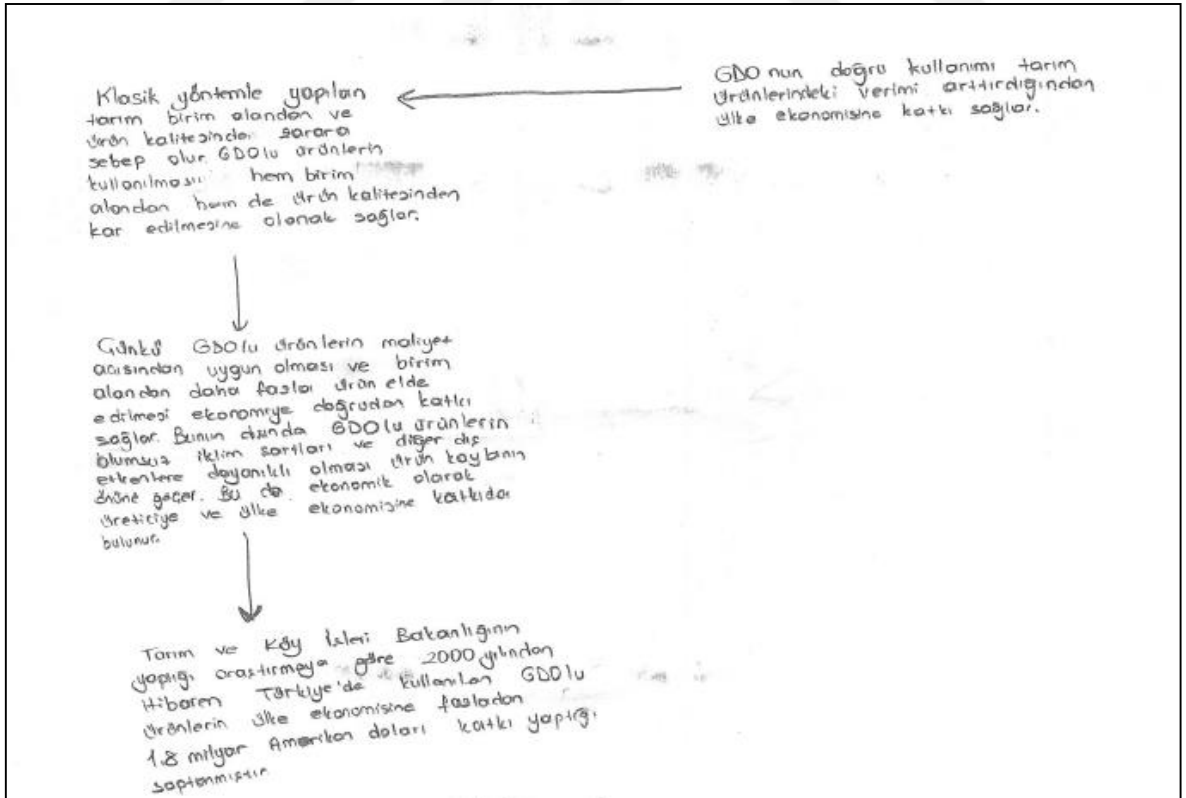 GDO nun doğru kullanımı tarım
ürünlerindeki verimi arttırdığından
ülke ekonomisine katkı sağlar.
Klasik yöntemle yapılan
tarım birim alandan ve
ürün kalitesinden zarara
sebep olur. GDOlu ürünlerin
kullanılması hem birim
alandan hem de ürün kalitesinden
kar edilmesine olanak sağlar.
Çünkü GDOlu ürünlerin maliyet
açısından uygun olması ve birim
alandan daha fazla ürün elde
edilmesi ekonomiye doğrudan katkı
sağlar. Bunun dışında GDOlu ürünlerin
olumsuz iklim şartları ve diğer dış
etkenlere dayanıklı olması ürün kaybının
önüne geçer. Bu da ekonomik olarak
üreticiye ve ülke ekonomisine katkıda
bulunur.
Tarım ve Köy İşleri Bakanlığının
yaptığı araştırmaya göre 2000 yılından
itibaren Türkiye'de kullanılan GDOlu
ürünlerin ülke ekonomisine fazladan
1.8 milyar Amerikan doları katkı yaptığı
saptanmıştır.